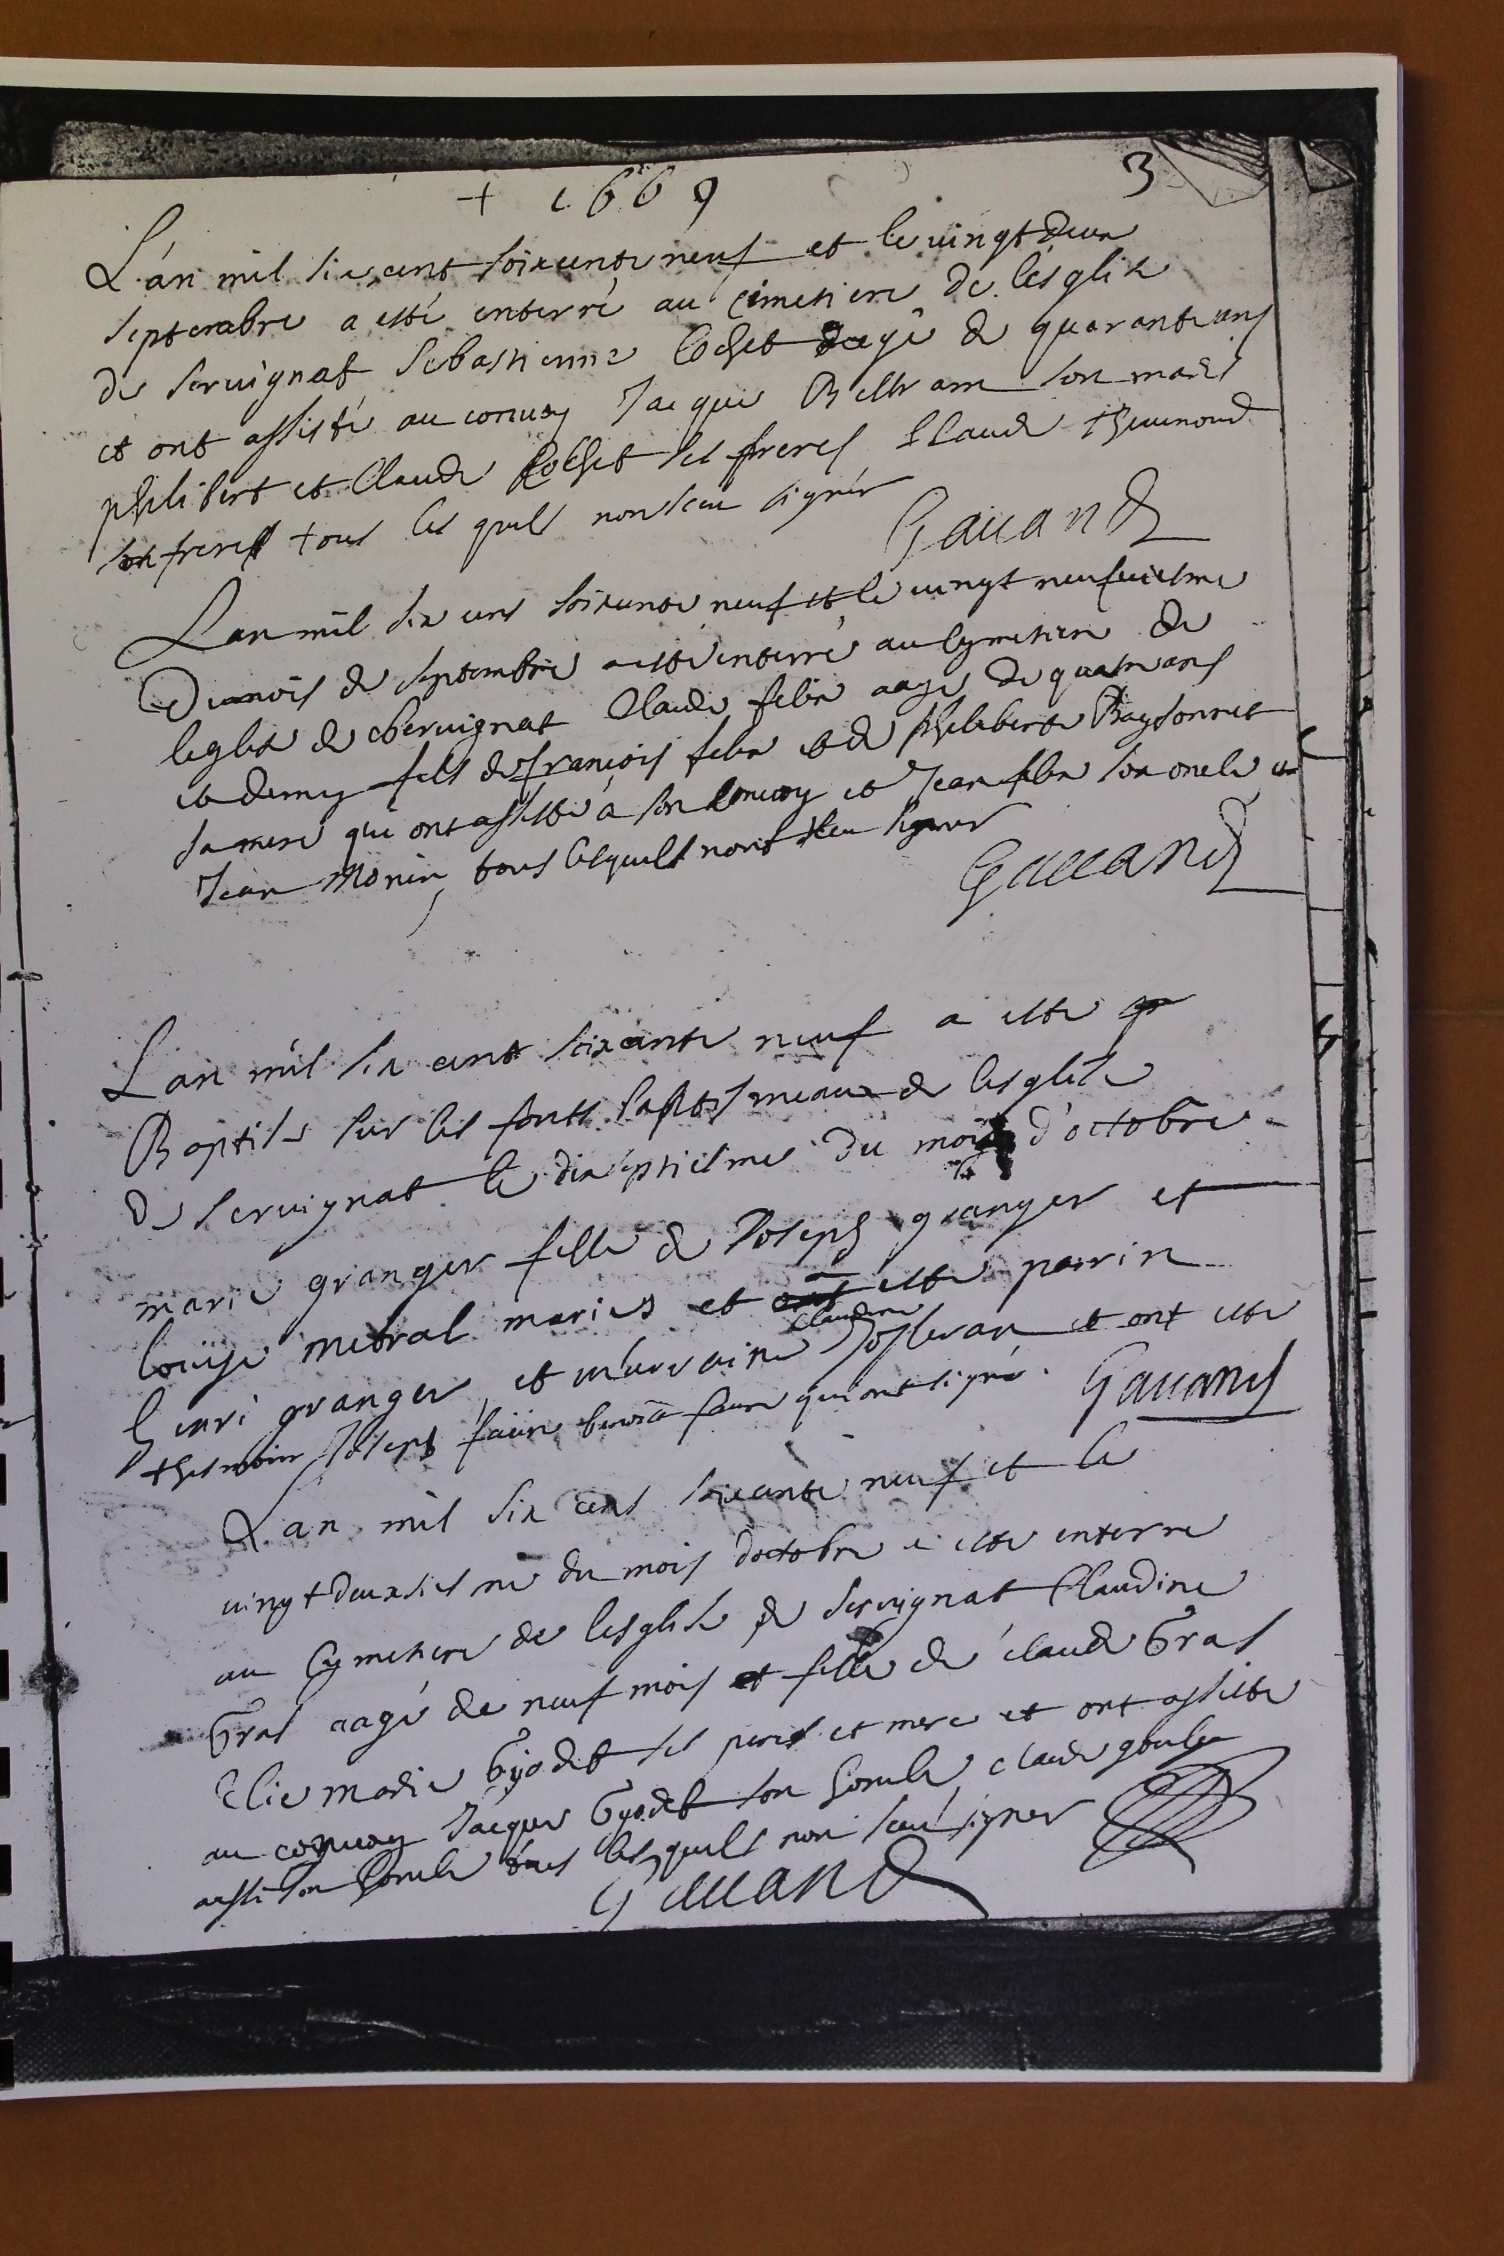 + 1669
3
L'an mil six cent soixante neuf et le vingt deux
septembre a esté enterré au cimetiere de l'esglise
de servignat sebastienne Cochet aagé de quarante ans
et ont assisté au convoy Jacque Beltram son maris
philibert et Claude Cochet ses freres Claude thevenond
son freres tous les quels non sceu signér
Gavand
L'an mil six cens soixante neuf et le vingt neufviesme
du mois de septembre a esté enterré au Cymetiere de
leglise de chervignat Claude felix aagé de quatre ans
et demy fils de françois felix et de philiberte Raysonnet
sa mere qui ont assisté a son convoy et Jean felix son oncle et
Jean Monin tous lesquels nont sceu signer
Gavand
L'an mil six cent soixante neuf a este
Baptise sur les fonts baptismeaux de lesglise
de servignat le dix septiesme du mois d'octobre
marie granger fille de Joseph granger et
louyse metral maries et esté parrin
henri granger et marraine Claudine Josseran et ont este
thesmoin Joseph faure benoit faure qui ont signé. Gavand
L'an mil six cens soixante neuf et le
vingt deuxsiesme du mois doctobre a este enterre
au Cymetiere de lesglise de servignat Claudine
Gras aagé de neuf mois et fille de claude Gras
Elie marie Gyodet ses peres et mere et ont assiste
au convoy Jacques Gyodet son honcle claude
aussi son honcle tous lesquels non sceu signer
Gavand